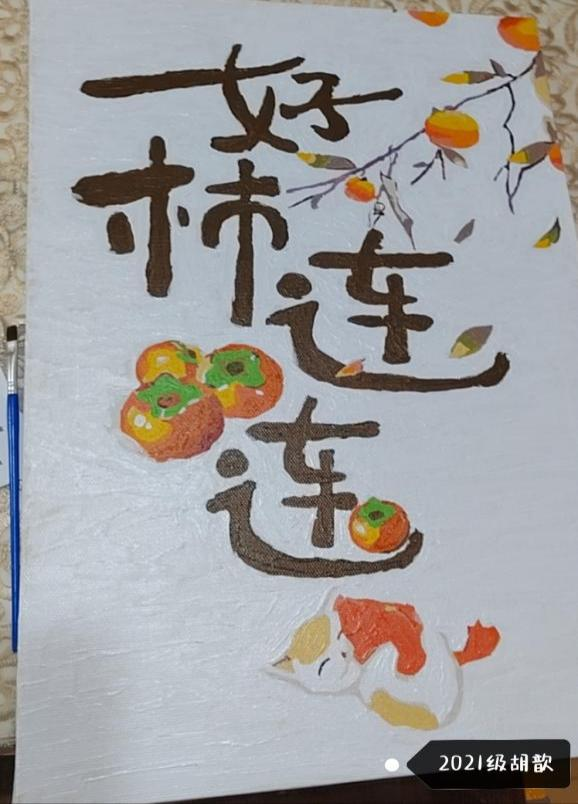 好
柿
连
连
2021级胡歆